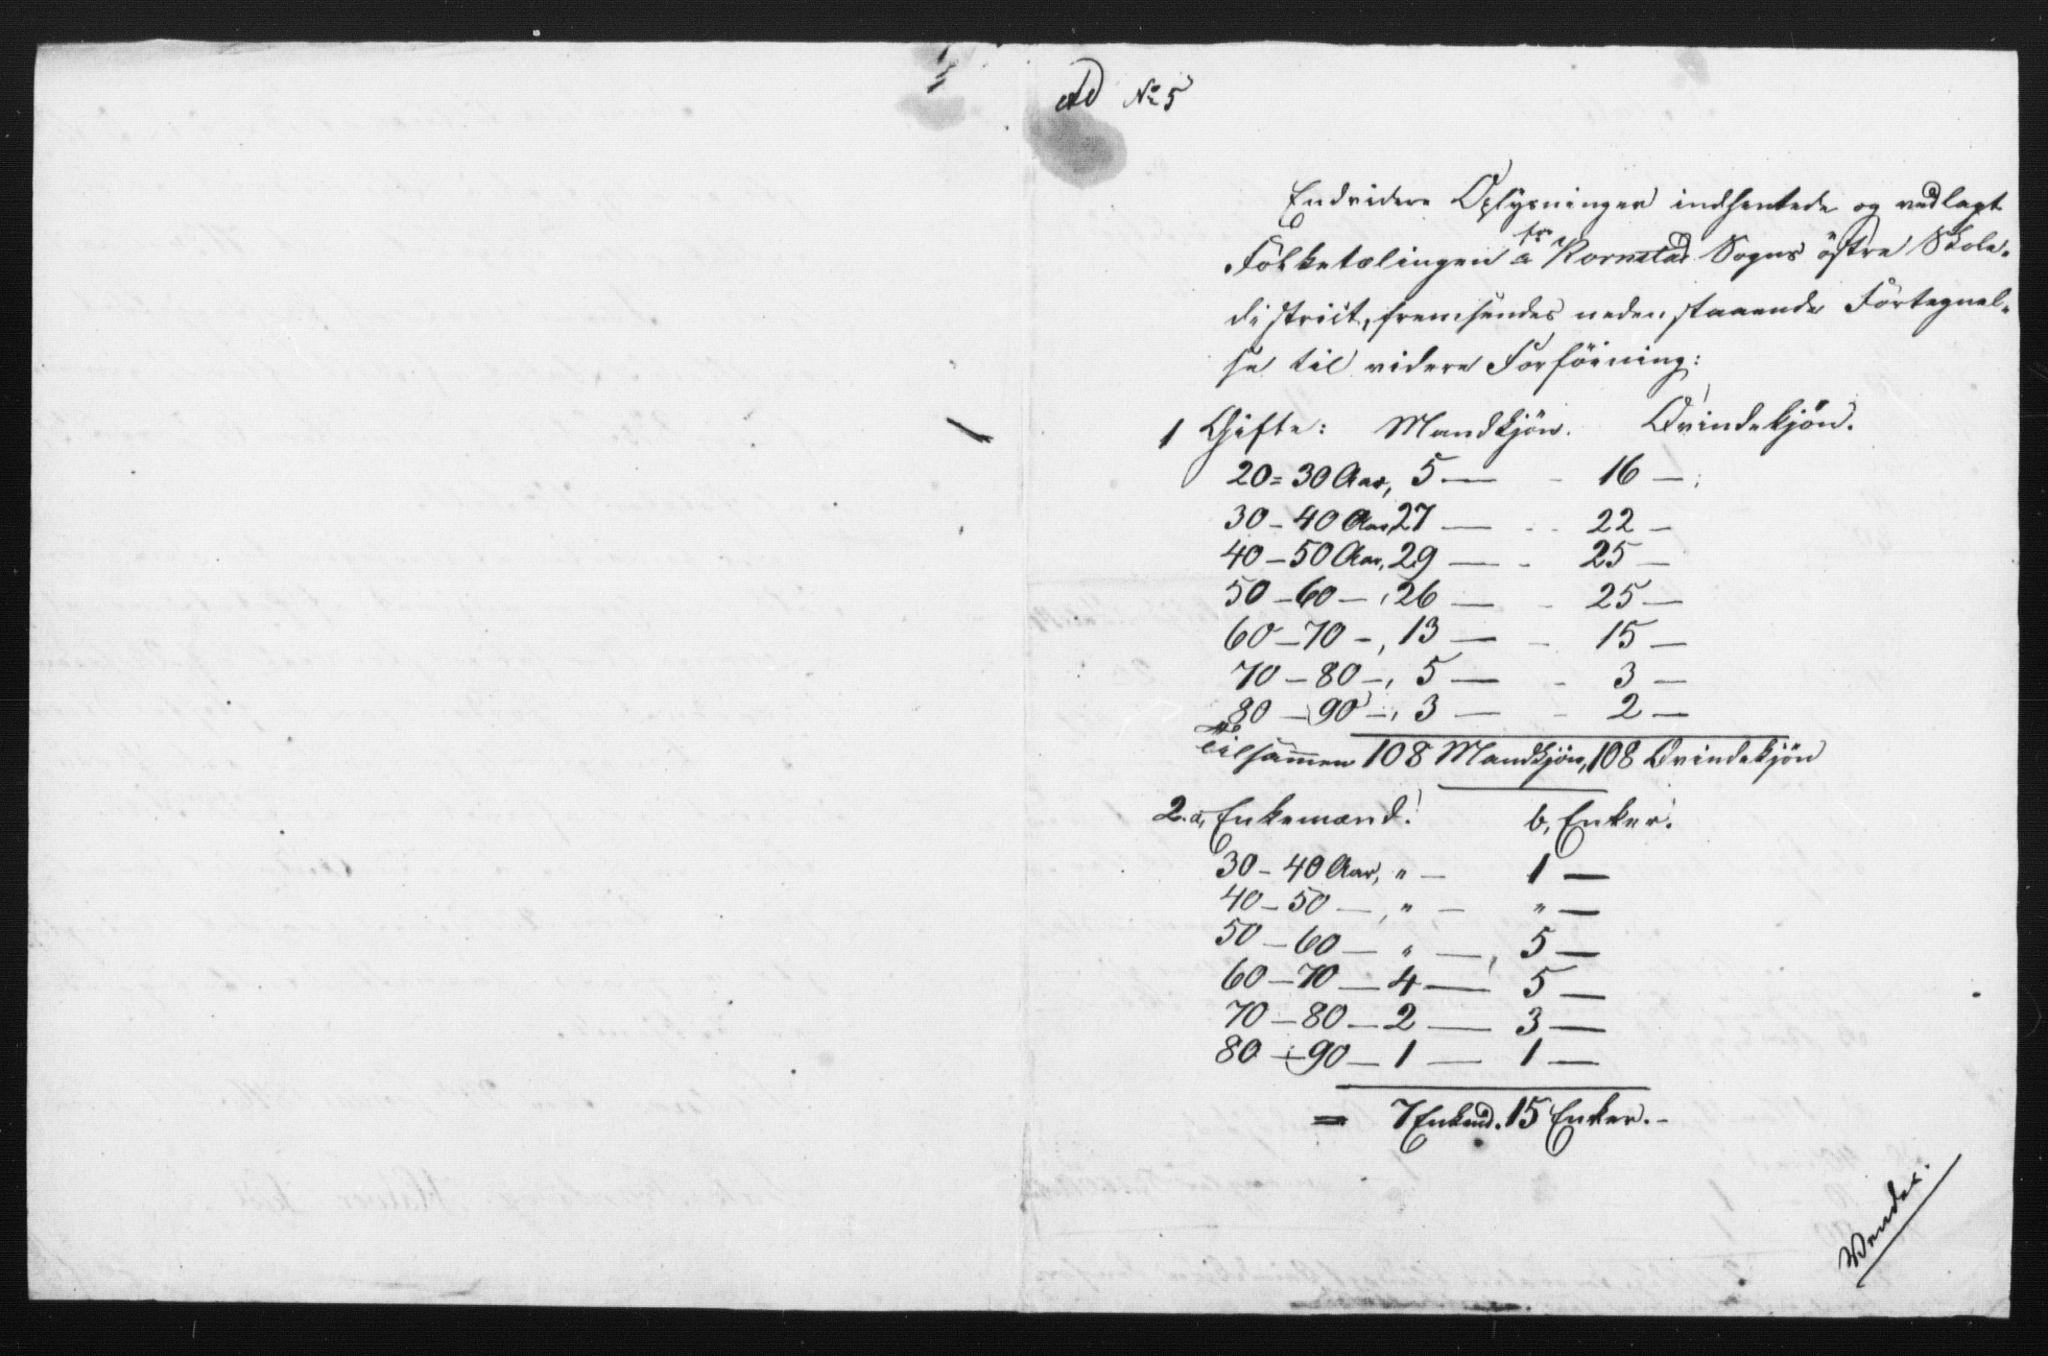 Ad No 5
Endvidere Oplysninger indhentede og vedlagt
Folketælingen fra Kornstad Sogns östre Skole-
district, fremsendes nedenstaaende Fortegnel-
se til videre Forföining:
1 Gifte: Mandkjön. Qvindekjön.
20=30 Aar, 5 — - 16 —
30-40 Aar, 27 — - 22 —
40-50 Aar, 29 — - 25 —
50-60 —, 26 — - 25 —
60-70 —, 13 — - 15 —
70-80 —, 5 — - 3 —
80-90 —, 3 — - 2 —
tilsammen 108 Mandkjön, 108 Qvindekjön
2. a, Enkemænd. b, Enker.
30-40 Aar, " — 1 —
40-50 —, " — " —
50-60 — " —, 5 —
60-70 — 4 — 5 —
70-80 — 2 — 3 —
80-90 — 1 — 1 —
= 7 Enkmd. 15 Enker. -
Vendes.